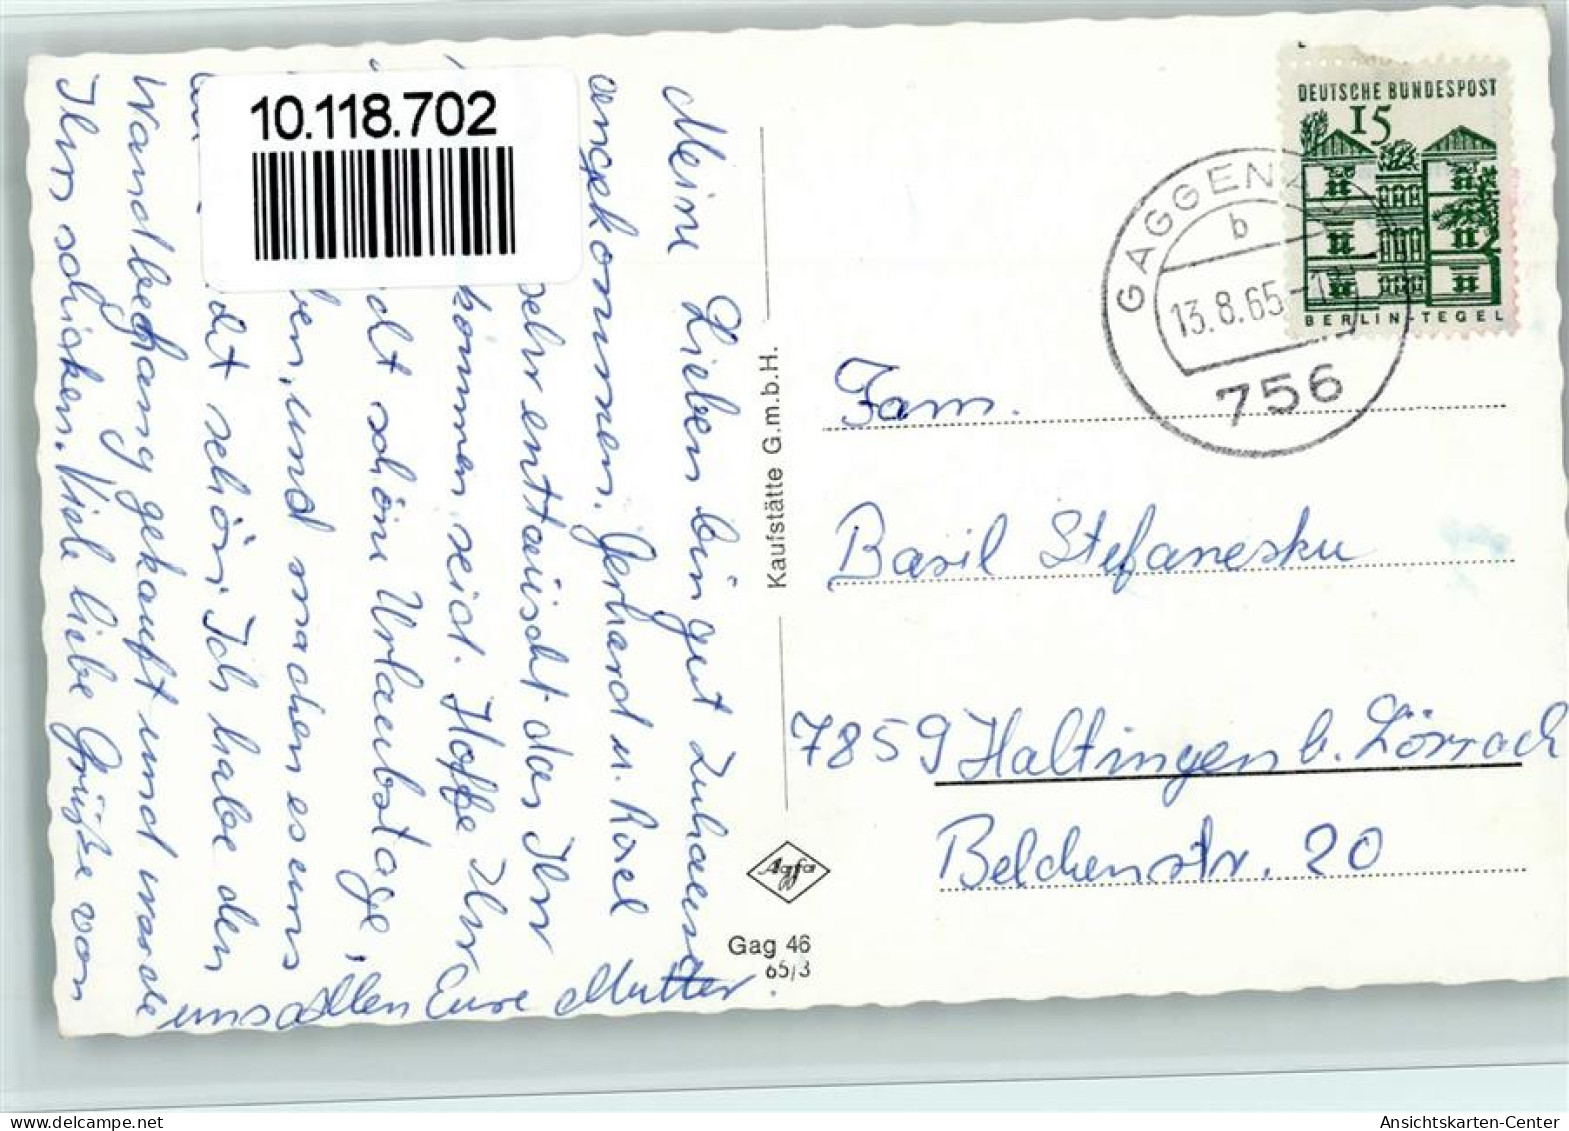 10.118.702
Meine Lieben bin gut Zuhause
angekommen. Gerhard u. Rosel
sehr enttäuscht das Ihr
kommen seid. Hoffe Ihr
schöne Urlaubstage,
und machen es uns
schön. Ich habe den
Wandbehang gekauft und werde
Ihn schicken. Viele liebe Grüße von
uns allen Eure Mutter.
Kaufstätte G.m.b.H.
Agfa
Gag 46
65/3
DEUTSCHE BUNDESPOST
15
BERLIN-TEGEL
GAGGENAU
b
13.8.65
756
Fam.
Basil Stefanesku
7859 Haltingen b. Lörrach
Belchenstr. 20
Ansichtskarten-Center
delcampe.net